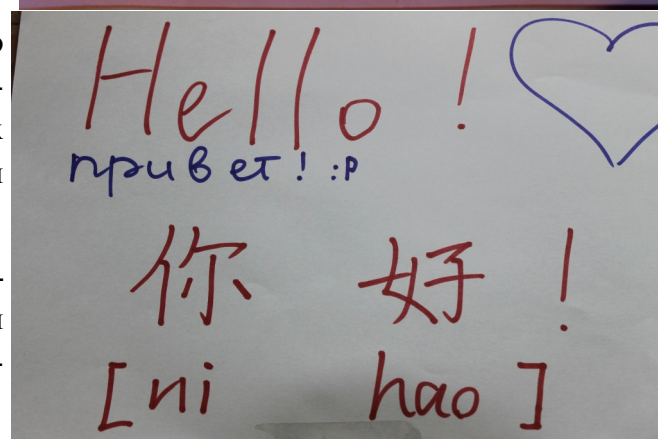 Hello !
привет ! :P
你 好 !
[ni hao]